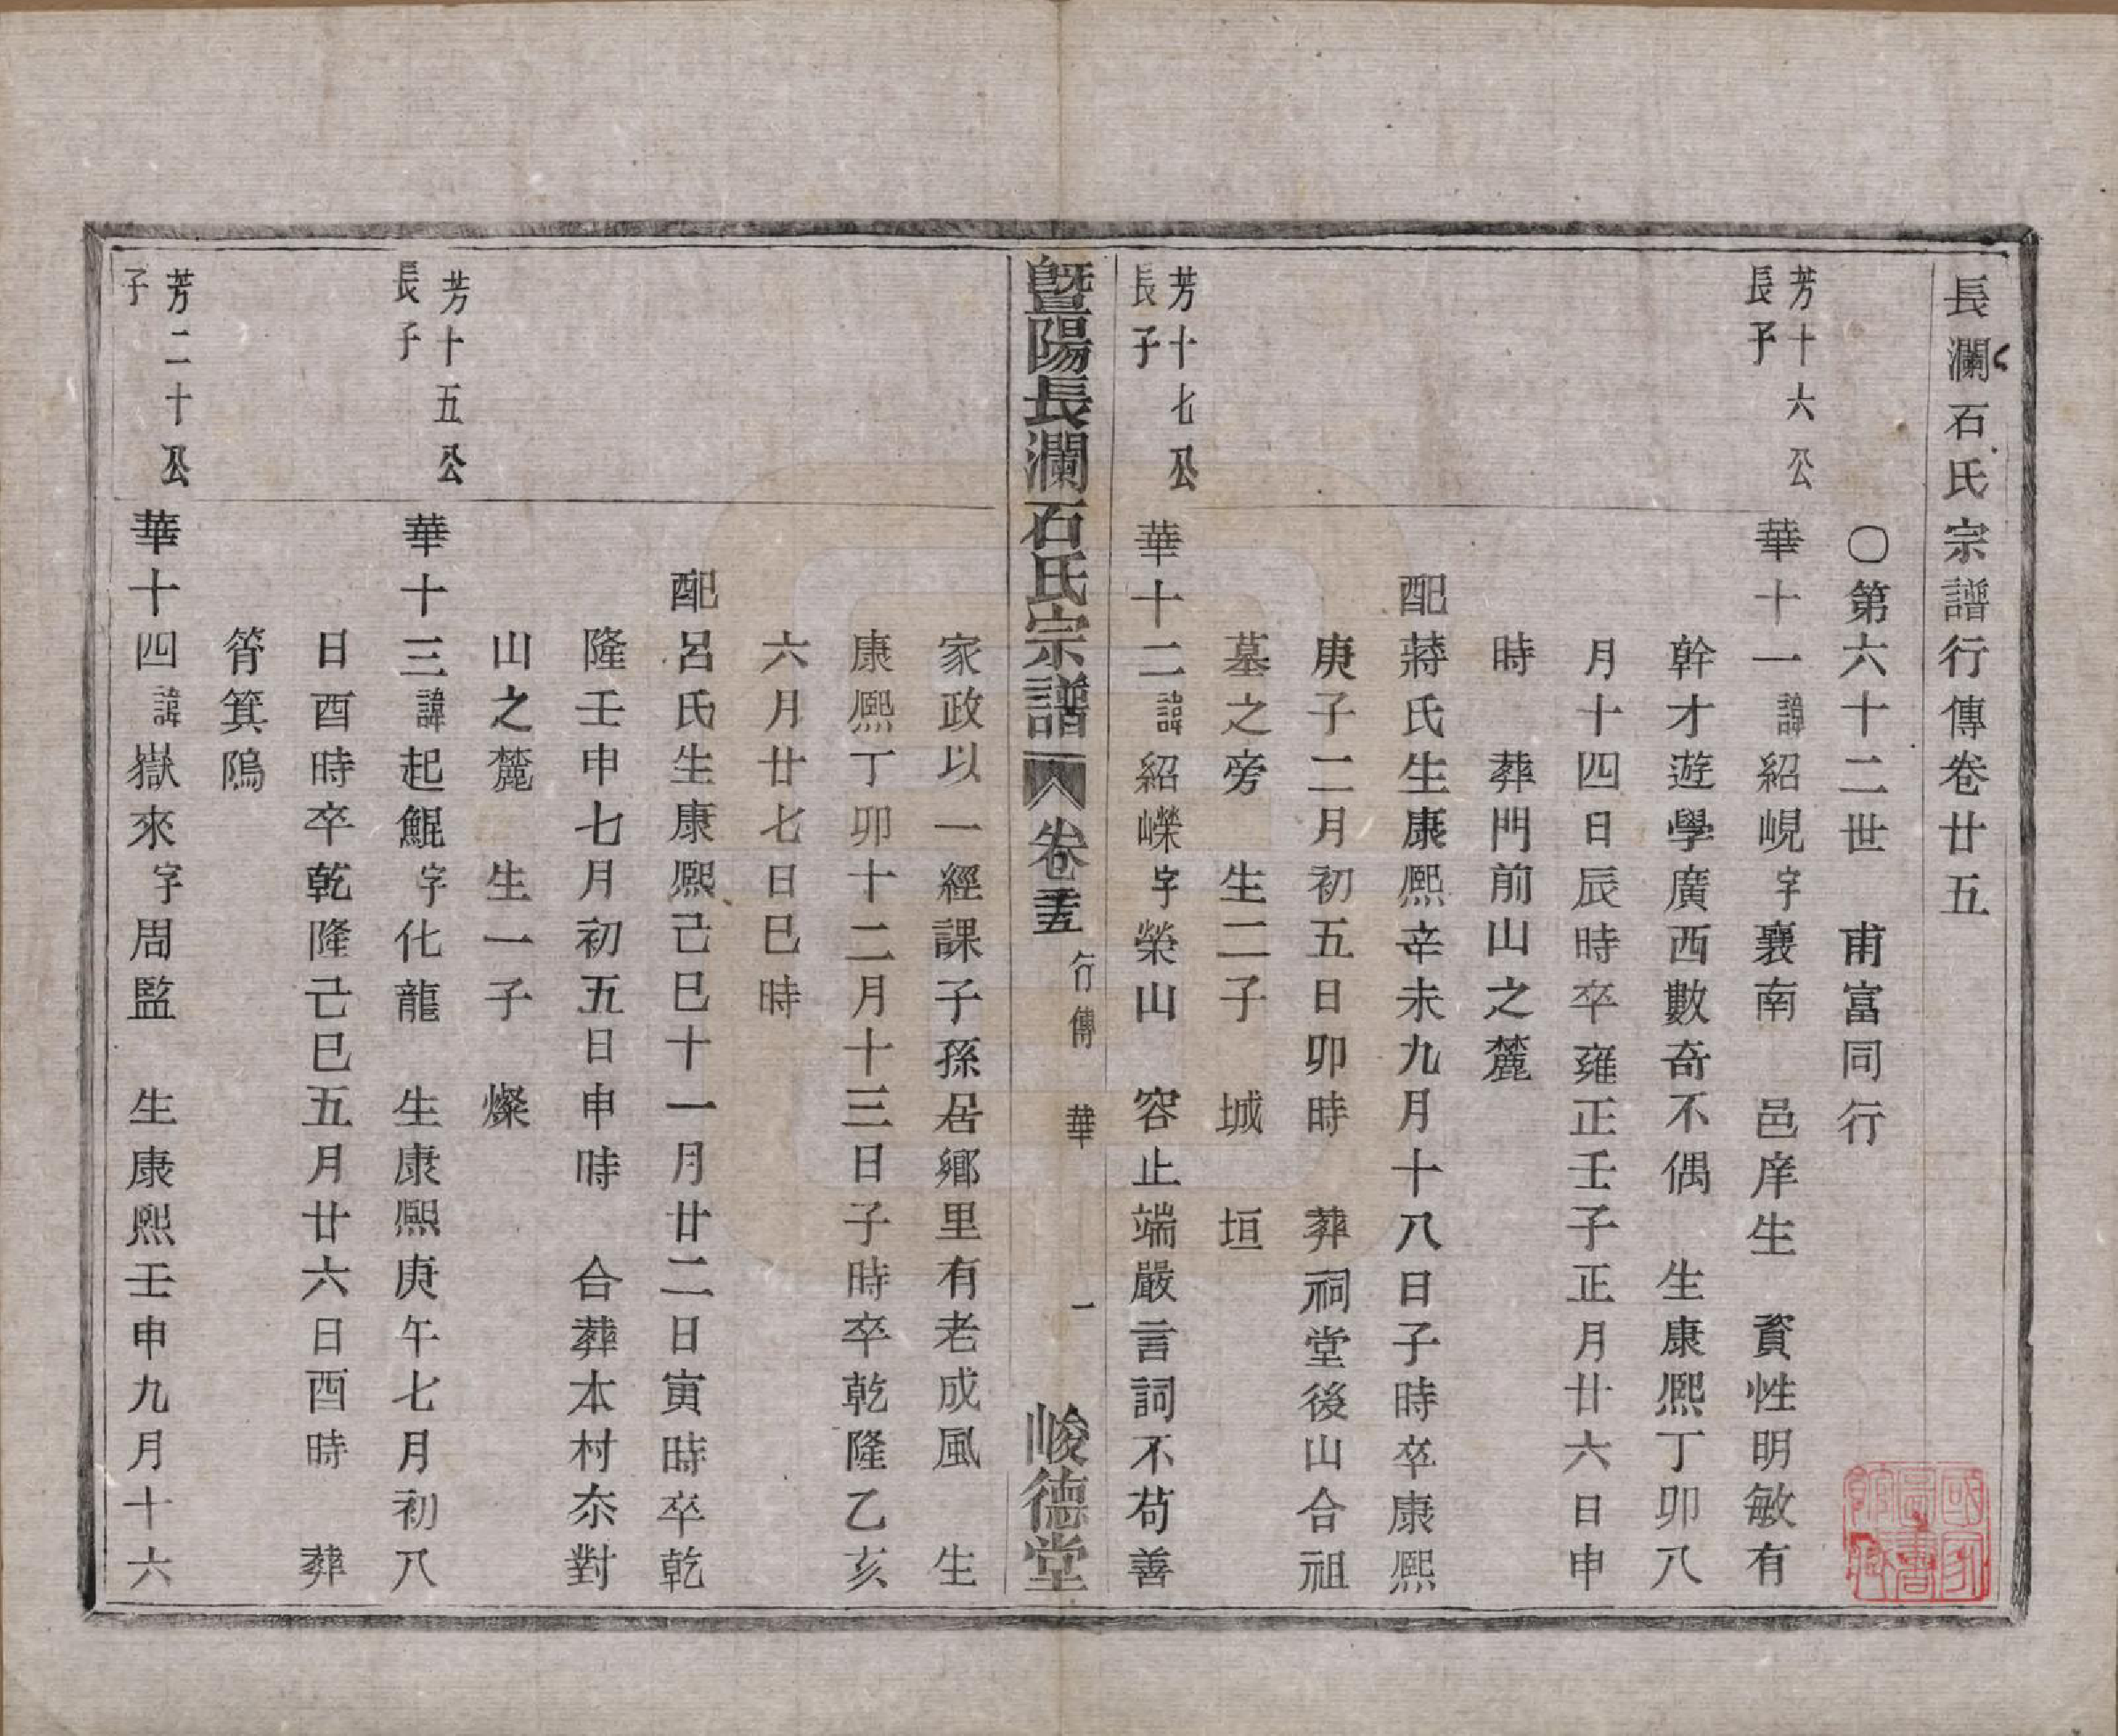 長瀾石氏宗譜行傳卷廿五
〇第六十二世　甫富同行
芳十六公
長子
華十一諱紹峴字襄南　邑庠生　資性明敏有
幹才遊學廣西數奇不偶　生康熙丁卯八
月十四日辰時卒雍正壬子正月廿六日申
時　葬門前山之麓
配蔣氏生康熙辛未九月十八日子時卒康熙
庚子二月初五日卯時　葬祠堂後山合祖
墓之旁　生二子　城　垣
芳十七公
長子
華十二諱紹嶸字榮山　容止端嚴言詞不苟善
暨陽長瀾石氏宗譜　卷二十五　行傳　華　一　峻德堂
家政以一經課子孫居鄉里有老成風　生
康熙丁卯十二月十三日子時卒乾隆乙亥
六月廿七日巳時
配呂氏生康熙己巳十一月廿二日寅時卒乾
隆壬申七月初五日申時　合葬本村夵對
山之麓　生一子　燦
芳十五公
長子
華十三諱起鯤字化龍　生康熙庚午七月初八
日酉時卒乾隆己巳五月廿六日酉時　葬
筲箕隝
芳二十公
子
華十四諱嶽來字周監　生康熙壬申九月十六
國家圖書館藏書